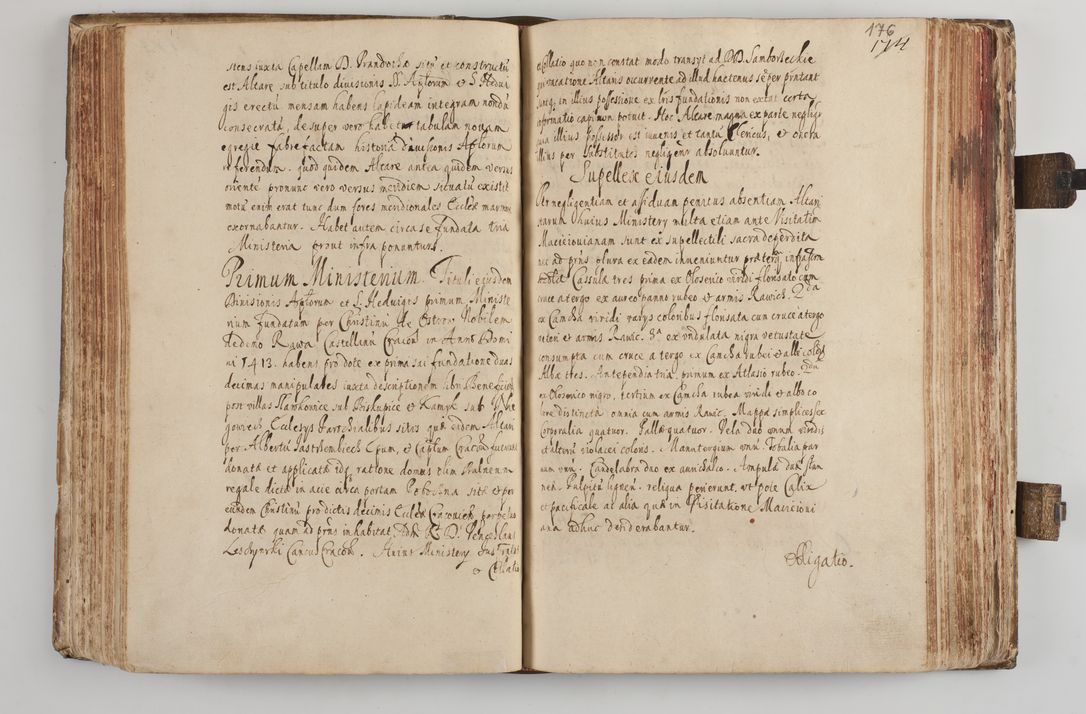 stens iuxta Capellam D. Prandotha situ et constructu
est Altare sub titulo diuisionis SS. Aptorum et S. Hedui
gis erectu mensam habens lapideam integram nondu
consecrata, desuper vero habetur tabulam nouam
egregie fabrefactam historia diuisionis Aptorum
referendum. quod quidem Altare antea quidem versus
oriente pronunc vero versus meridiem situatu existit
motu enim erat tunc dum fores meridionales Ecclae marmore
exornabantur. Habet autem circa se fundata tria
Ministeria prout infra ponantur.
Primum Ministerium. Tituli eiusdem
Diuisionis Aptorum et S. Heduigis primum Ministe
rium fundatum per Christinu de Ostrow Nobilem
Castellanu Cracou in Anno Domi
ni 1413. habens pro dote ex prima sui fundatione duas
decimas manipulares iuxta descriptionem libri Beneficior
post villas Slawkowice sub Biskupice et Kamyk sub
Ecclesys Parochialibus sitas qua eidem Altari
per Albertu Jastrzembiech Epum, et Captum Cracou fuerunt
donata et applicata ratione domus olim Balneum
regale dicta in acie circa portam sita et per
eundem Christinu pro dictis decimis Ecclae Cracouien perpetuo
donata quam ad prns inhabitat Adm R. D. Venceslaus
Leschynski Cancus Cracou. Huius Ministery Jus
et Collatio
176
174
Collatio quo non constat modo transyt ad DD. Samborzeckie
qui vacatione Altaris occurrente ad illud hactenus seper prntant
suntq in illius possessione ex lris fundationis non extat certa
informatio capi non potuit. Hoc Altare magna ex parte negligi
tur illius Possessor est iuuenis et tantu Clericus, et onera
illius per substitutos negligenr absoluuntur.
Supellex eiusdem
Per negligentiam et assiduam penitus absentiam Altari
starum huius Ministery multa etiam ante Visitatio
Macieiouianam sunt ex supellectili sacra deperdita
nec ad prns plura ex eadem inueniuntur praeter infrascr
Casula tres prima ex Olosenico viridi florisato cum
cruce a tergo ex aureo panno rubeo et armis Rawich. 2da
ex Camcha viridi varys coloribus florisata cum cruce a tergo
et armis Rawic. 3a ex vndulata nigra vetustate
consumpta cum cruce a tergo ex Camcha rubei et albi coloris
Albae tres. Antependia tria, primum ex Atlasio rubeo. 2da
ex Olosenico nigro, tertium ex Camcha rubea viridi et albo co
lore distincta omnia cum armis Rawic. Mappa simplices sex
Corporalia quatuor. Palla quatuor. Vela duo vnum viridis
et alteru violacei coloris. Manutergium vnu. Tobalia par
uum vnu. Candelabra duo ex aurichalco. Ampula dua stan
nea. Pulpitu ligneu. reliqua perierunt. vt pote Calix
et pacificale ac alia qua in Visitatione Macieioui
ana adhuc desiderabantur.
Obligatio.